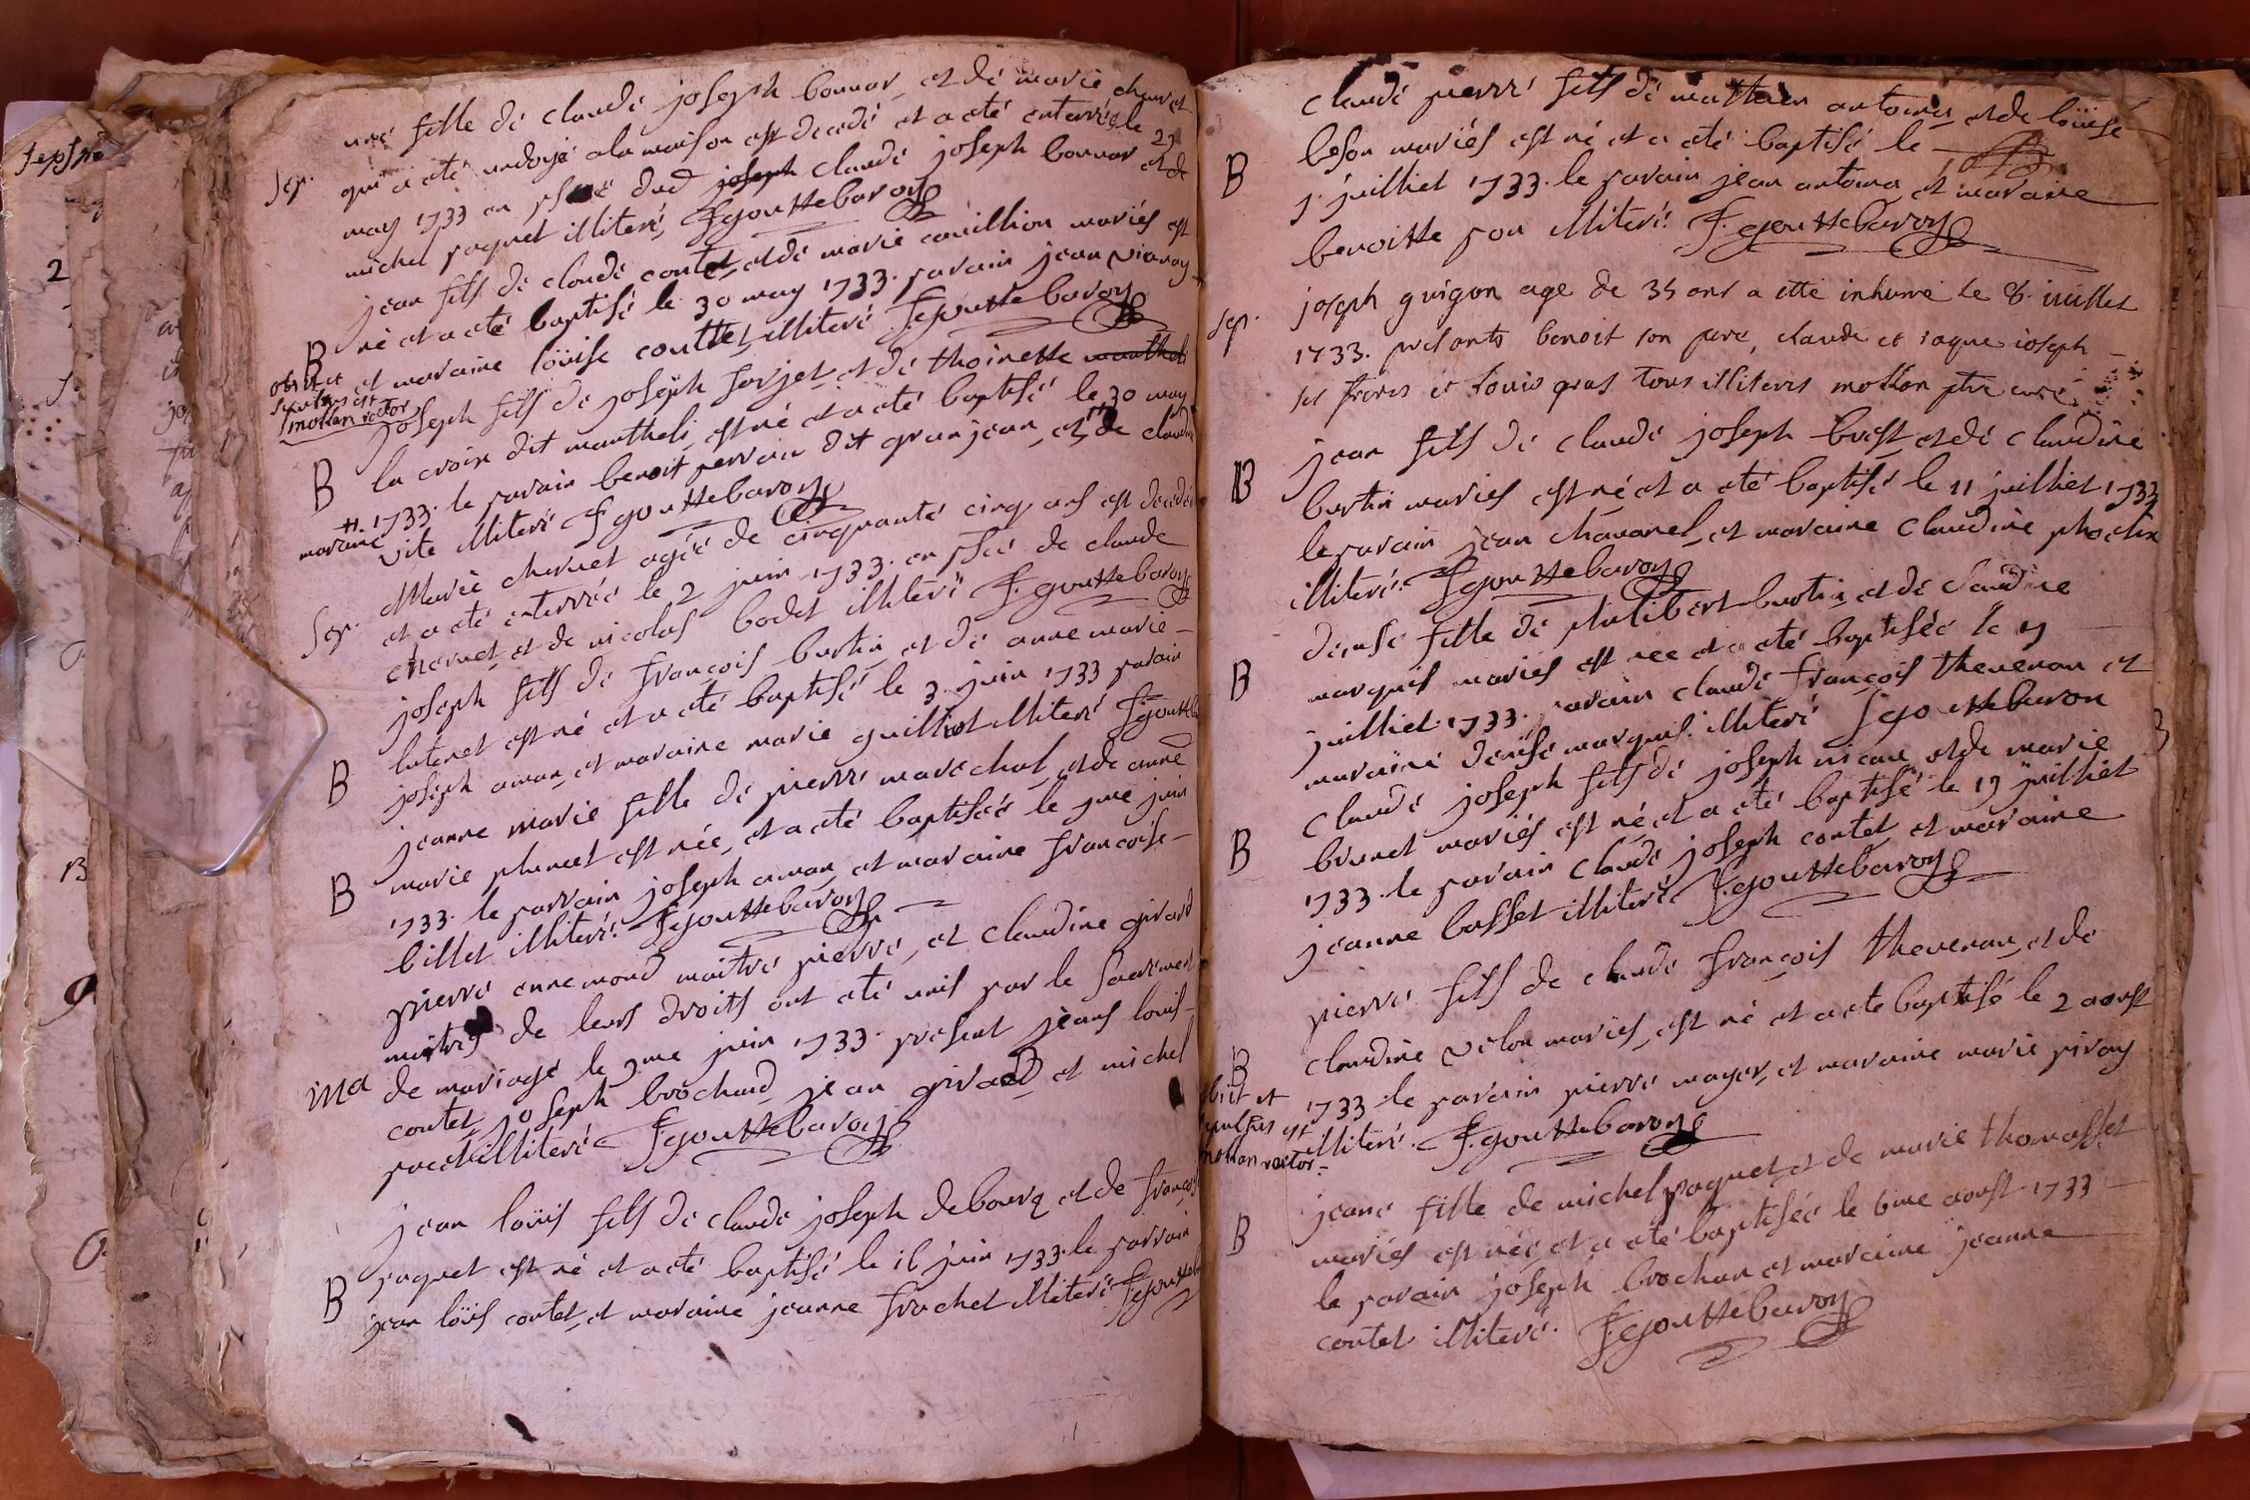 une fille de claude joseph bonnar et de marie charvet
Sep. qui a eté undoyé a la maison est decedé et a eté enterrée le 29
may 1733 en psce dud joseph claude joseph bonnar et de
michel paquet illiteré F. gouttebaron
jean fils de claude contet et de marie couillion mariés est
B né et a eté baptisé le 30 may 1733. parain jean vianay
et maraine loüise couttet illiteré F. gouttebaron
obiit et
sepultus est
mottan rector
joseph fils de joseph forjet et de thoinette mantheli
B la croix dit mantheli est né et a eté baptisé le 30 may
1733. le parain benoit perrain dit granjean et de claudine
maraine
vite illiteré F. gouttebaron
Marie charuet agée de cinquante cinq ans est decedée
Sep. et a eté enterrée le 2 juin 1733. en psce de claude
charuet et de nicolas bodet illiteré F. gouttebaron
joseph fils de françois burtin et de anne marie
B lutenet est né et a eté baptisé le 3 juin 1733 parain
joseph aman et maraine marie guilliot illiteré F. goutteba
jeanne marie fille de pierre marechal et de anne
B marie plunuet est née et a eté baptisée le jme juin
1733. le parrain joseph aman et maraine françoise
billet illiteré. F. gouttebaron
pierre ennemond maitre pierre et claudine girard
maitres de leurs droits ont eté unis par le sacrement
Ma de mariage le 9me juin 1733. présent jeans louis
contet joseph brochand jean girard et michel
pacet illiteré F. gouttebaron
jean loüis fils de claude joseph debourq et de françoi
B paquet est né et a eté baptisé le 16 juin 1733. le parrain
jean loüis contet et maraine jeanne frachet illiteré F. goutteb
claude pierre fils de matthieu antoina et de loüise
B beson mariés est né et a eté baptisé le
j. juilliet 1733. le parain jean antoina et maraine
benoitte pon illiteré. F. gouttebaron
Sep. joseph guigon age de 35 ans a ette inhumé le 8. iuillet
1733. presants benoit son pere, claude et iaque ioseph
ses freres et louis gras tous illiteres mottan ptre curé
jean fils de claude joseph brest et de claudine
B burtin mariés est né et a eté baptisé le 11 juilliet 1733
le parain jean chavanel et maraine claudine phoclix
illiteré. F. gouttebaron
denise fille de philibert burtin et de claudine
B marquis mariés est née et a eté baptisée le 17
juilliet 1733. parain claude françois thevenon et
maraine denise marquis. illiteré F. gouttebaron
claude joseph fils de joseph nicau et de marie
B brunet mariés est né et a eté baptisé le 19 juilliet
1733. le parain claude joseph contet et maraine
jeanne basset illiteré F. gouttebaron
pierre fils de claude françois thevenon et de
B claudine velon mariés est né et a eté baptisé le 2 aoust
1733. le parain pierre mayer et maraine marie piray
illiteré. F. gouttebaron
obiit et
sepultus est
mottan rector
jeane fille de michel paquet et de marie thomasset
B mariés est née et a eté baptisée le 6me aoust 1733
le parain joseph brochan et maraine jeanne
contet illiteré. F. gouttebaron